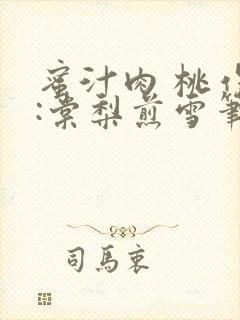 蜜汁肉桃作
:棠梨煎雪筆
司馬衷